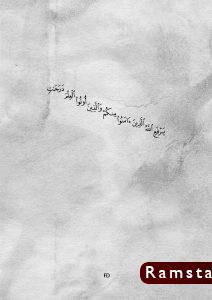 يَرْفَعِ ٱللَّهُ ٱلَّذِينَ ءَامَنُوا۟ مِنكُمْ وَٱلَّذِينَ أُوتُوا۟ ٱلْعِلْمَ دَرَجَٰتٍ
FD
Ramsta